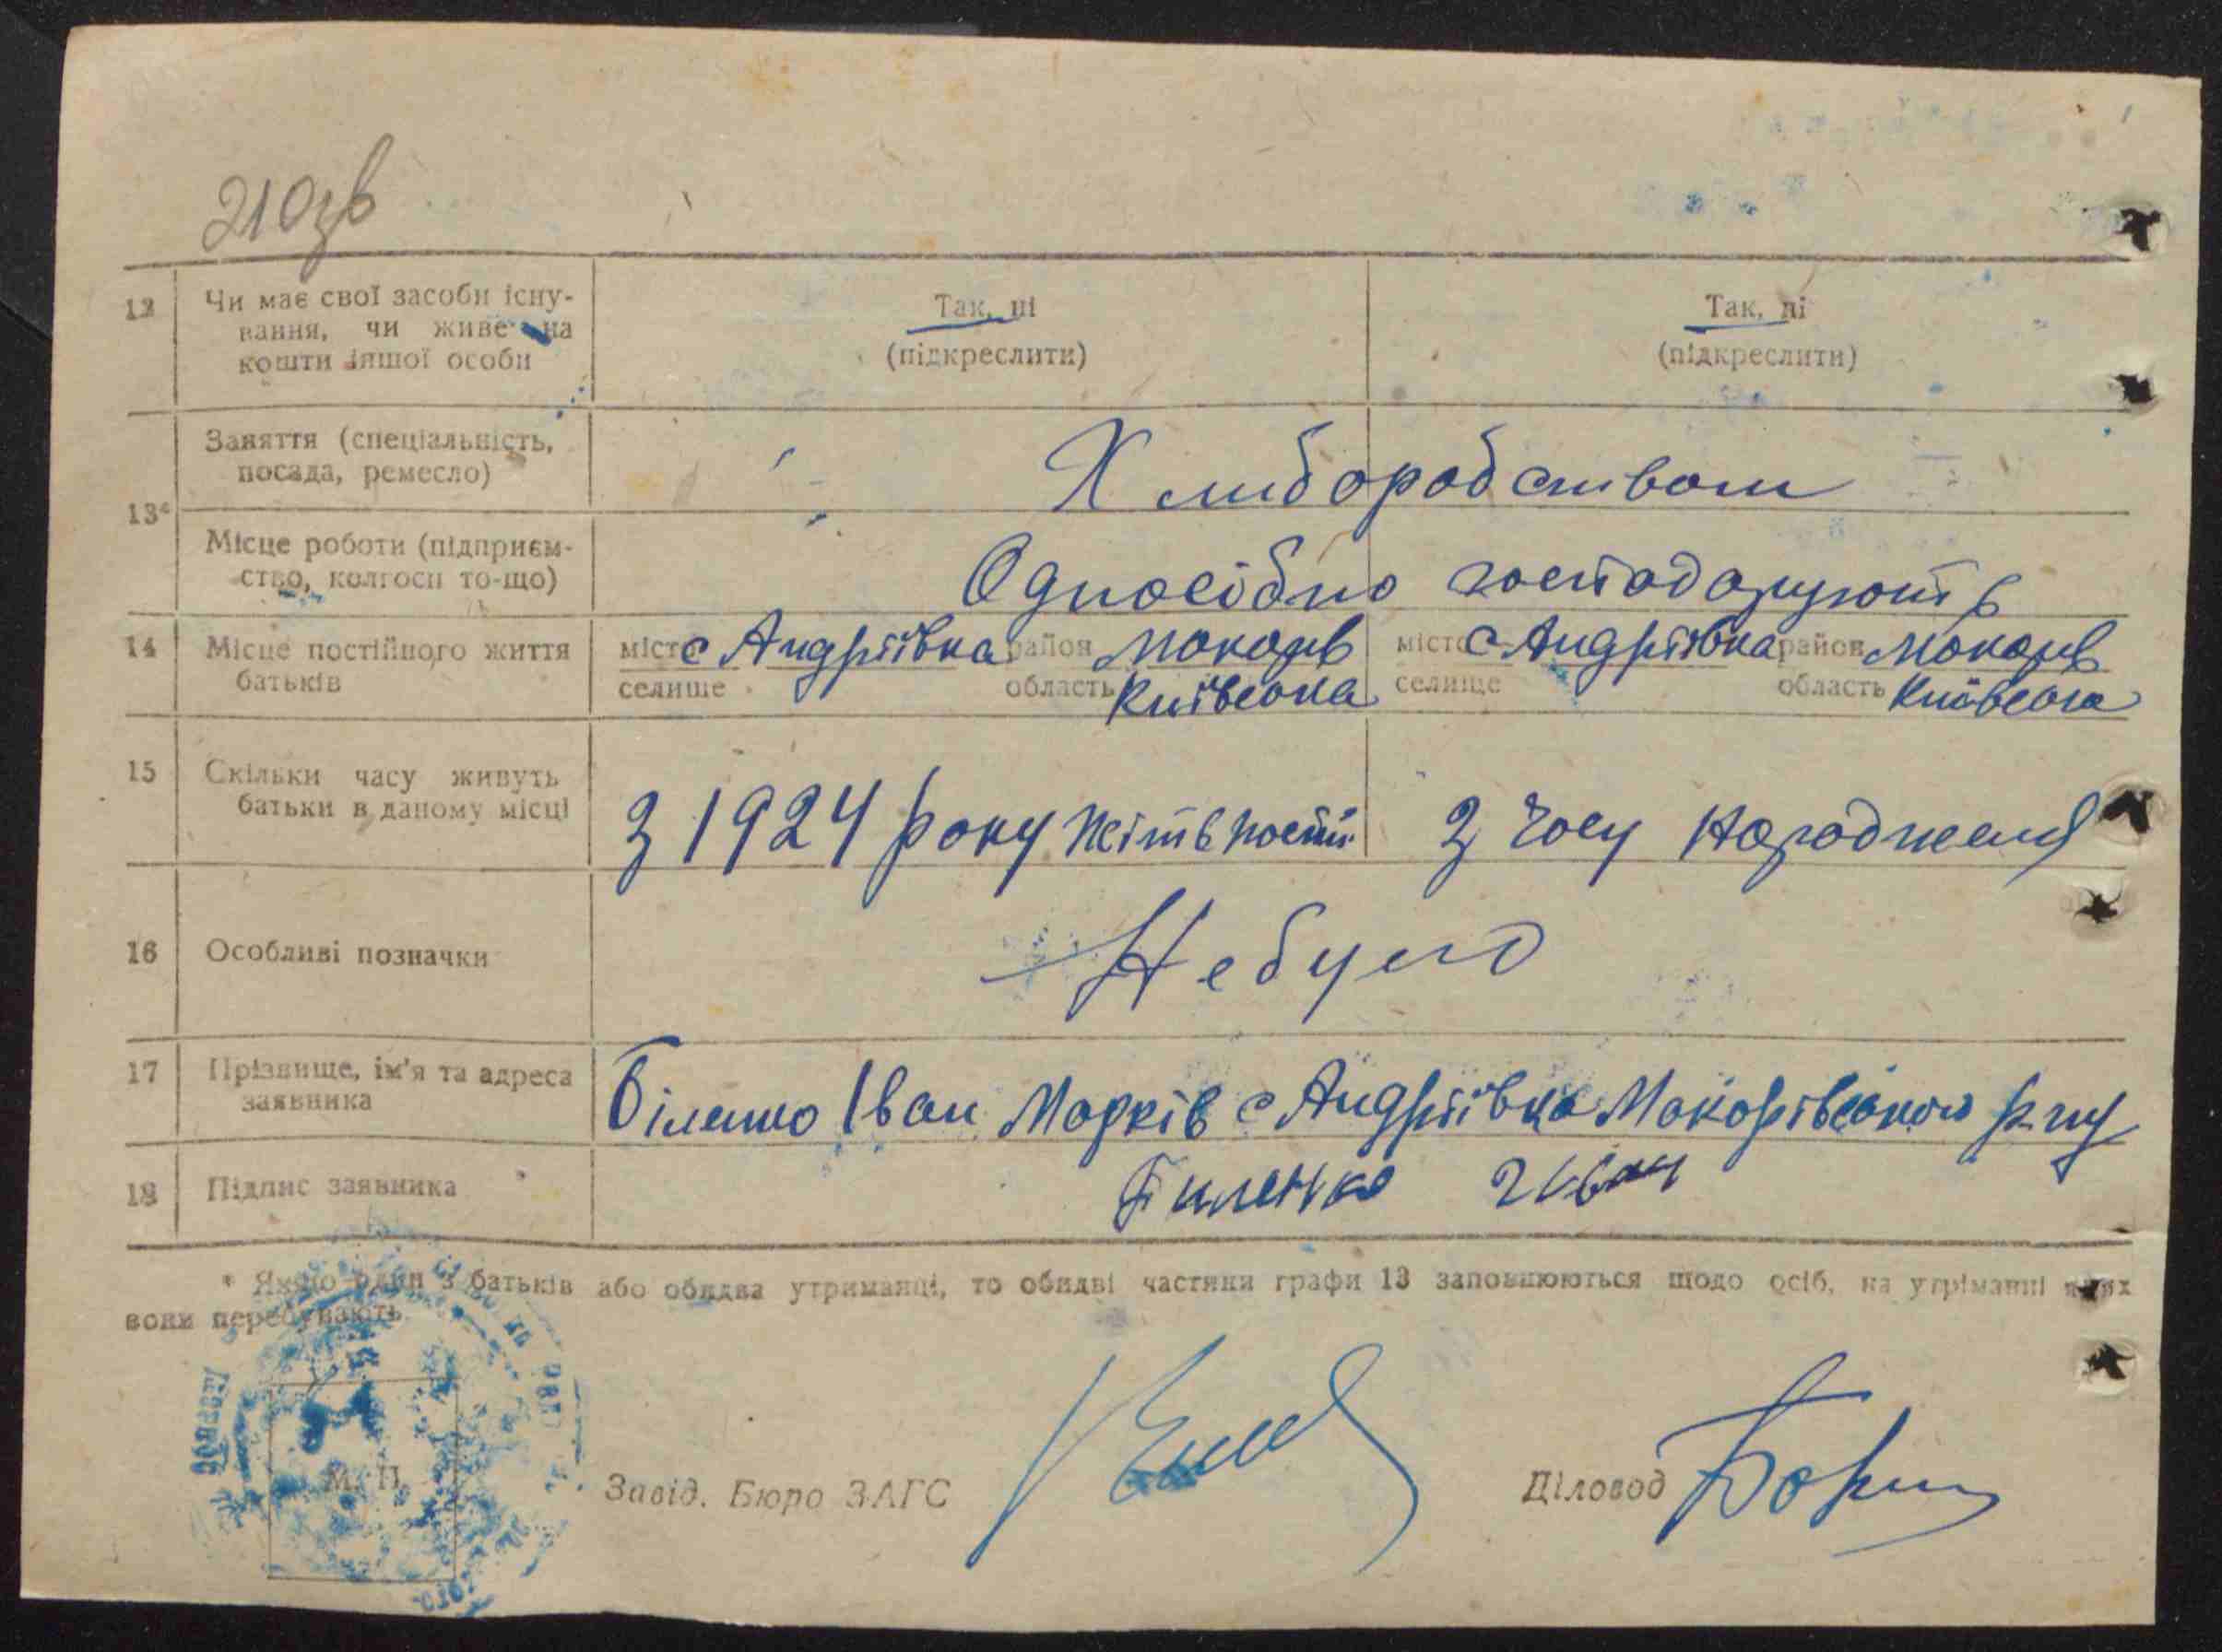 210зв
12 Чи має свої засоби існу- Так, ні Так, ні
вання, чи живе на
кошти іншої особи (підкреслити) (підкреслити)
Заняття (спеціальність,
посада, ремесло) Хлиборобством
13*
Місце роботи (підприєм-
ство, колгосп то-що) Одноосібно господарують
14 Місце постійного життя місто с Андріївка район Макарів місто с Андріївка район Макарів
батьків селище область Київська селище область Київська
15 Скільки часу живуть
батьки в даному місці З 1924 року З часу народженя
16 Особливі позначки Небуло
17 Прізвище, ім'я та адреса
заявника Біленко Іван Марків с Андріївка Макарівського р-ну
18 Підпис заявника Биленко Иван
* Якщо один з батьків або обидва утриманці, то обидві частини графи 13 заповнюються щодо осіб, на утріманні яких
вони перебувають
М. П.
Завід. Бюро ЗАГС Діловод